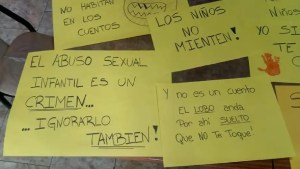 NO HABITAN
EN LOS
CUENTOS
LOS NIÑOS
NO
MIENTEN!
YO SI
TE
EL ABUSO SEXUAL
INFANTIL ES UN
CRIMEN...
... IGNORARLO
TAMBIEN!
Y no es un cuento
EL LOBO anda
Por ahí SUELTO
Que NO Te Toque!